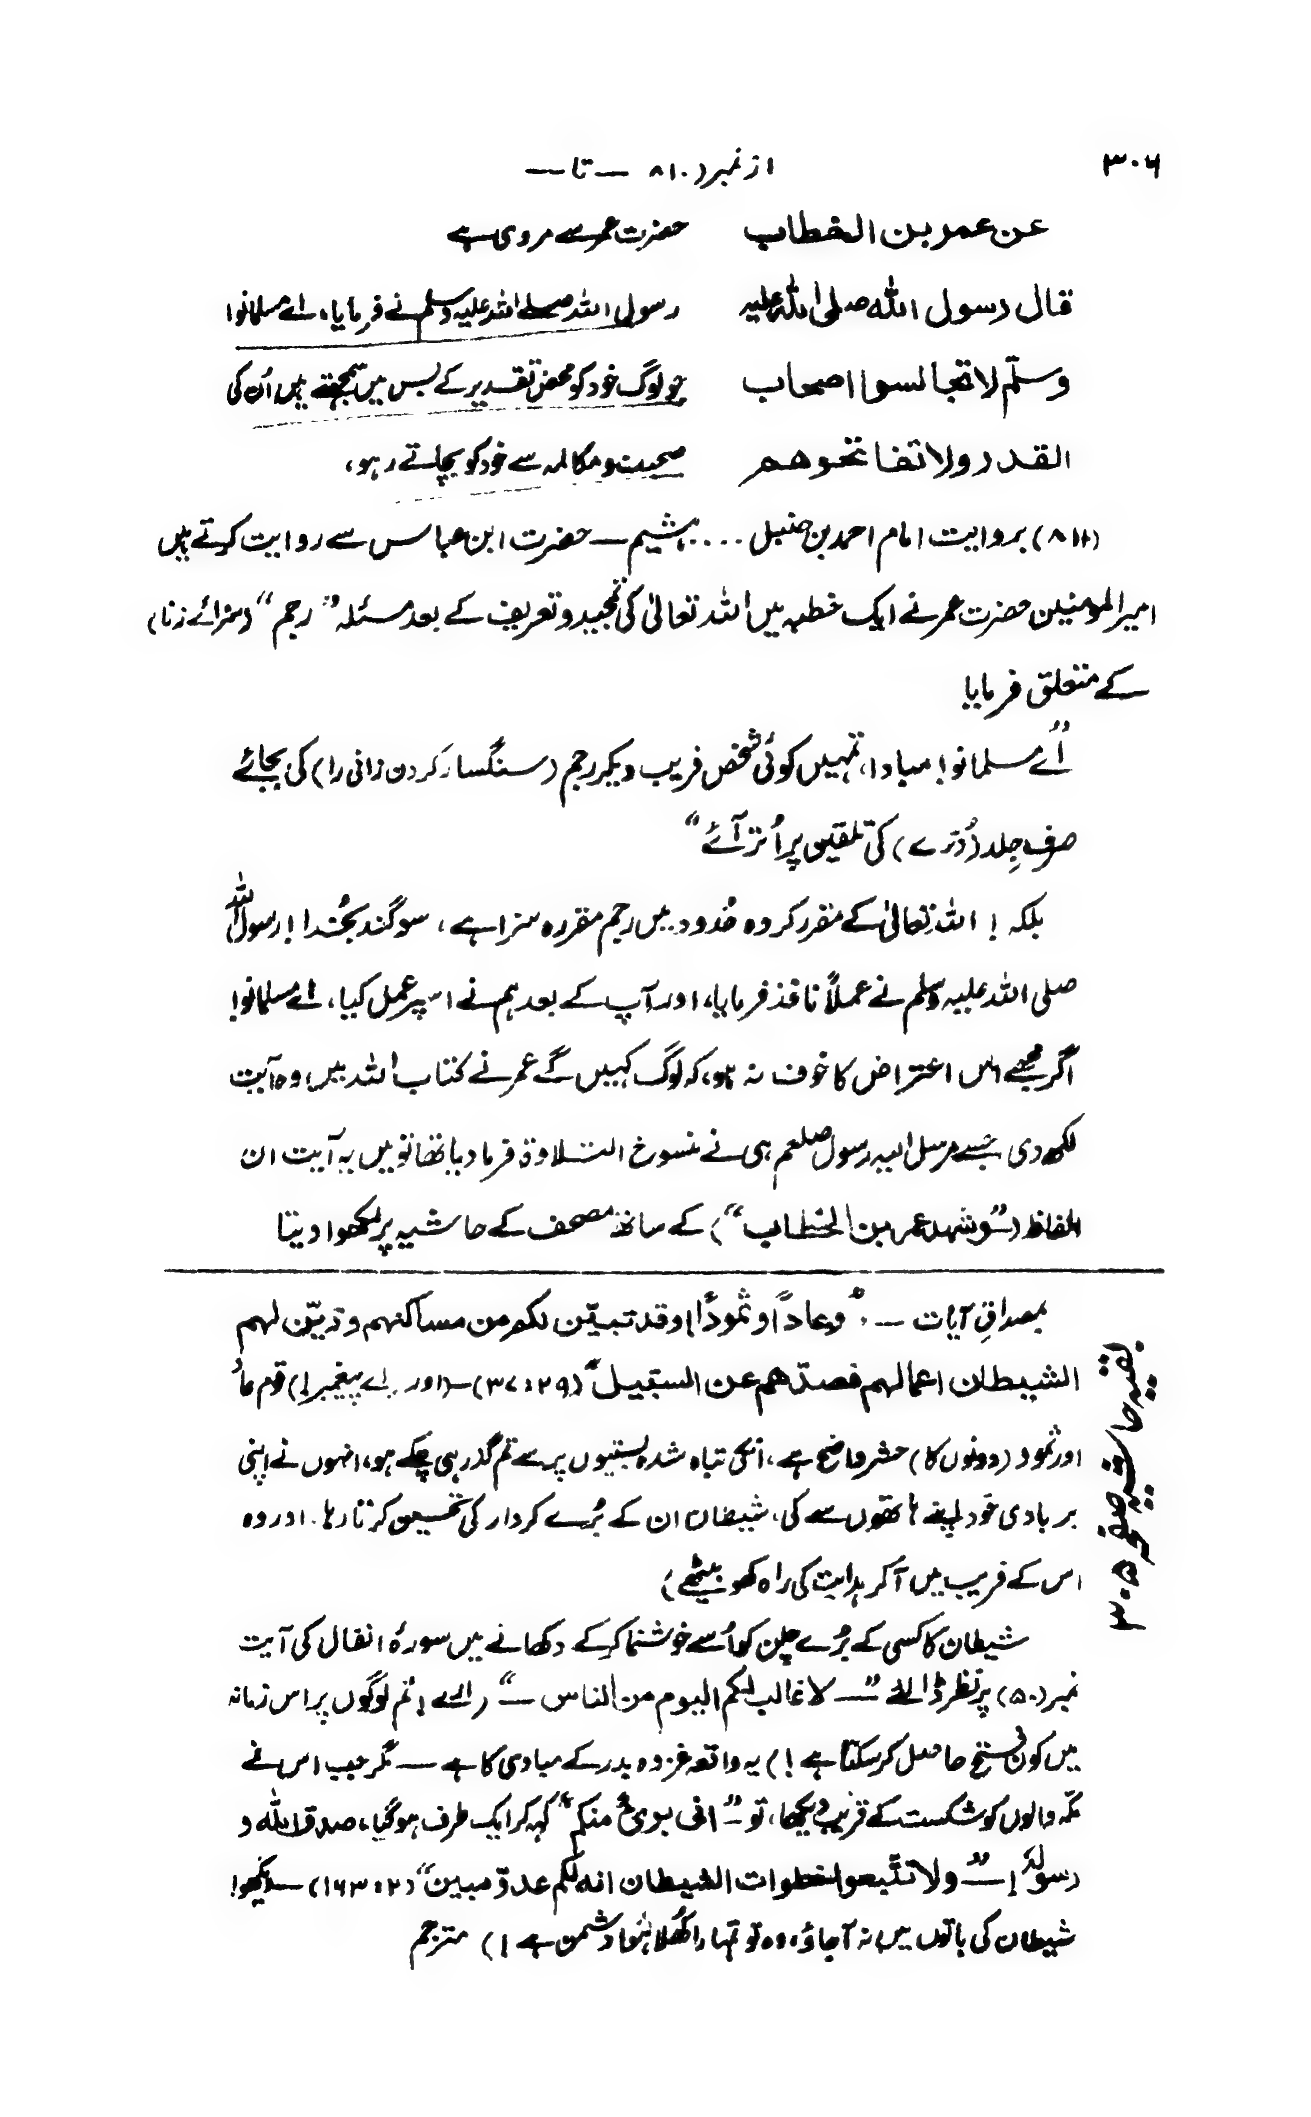 ۳۰۶
از نمبر (۸۱۰ — تا —
عن عمر بن الخطاب حضرت عمر سے مروی ہے
قال رسول اللہ صلی اللہ علیہ رسول اللہ صلے اللہ علیہ وسلم نے فرمایا، اے مسلمانو!
وسلّم لا تجالسوا اصحاب جو لوگ خود کو محض تقدیر کے بس میں سمجھتے ہیں اُن کی
القدر ولا تفاتحوهم صحبت و مکالمہ سے خود کو بچاتے رہو،
(۸۱۱) بروایت امام احمد بن حنبل .... ہشیم — حضرت ابن عباس سے روایت کرتے ہیں
امیر المومنین حضرت عمر نے ایک خطبہ میں اللہ تعالیٰ کی تمجید و تعریف کے بعد مسئلہ ”رجم“ (سزائے زنا)
کے متعلق فرمایا
”اے مسلمانو! مبادا، تمہیں کوئی شخص فریب دیکر رجم (سنگسار کردن زانی را) کی بجائے
صرف جِلد (دُرّے) کی تلقین پر اُتر آئے“
بلکہ! اللہ تعالیٰ کے مقرر کردہ حُدود میں رجم مقررہ سزا ہے، سوگند بخُدا! رسول اللہ
صلی اللہ علیہ وسلم نے عملاً نافذ فرمایا، اور آپ کے بعد ہم نے اسپر عمل کیا، اے مسلمانو!
اگر مجھے اس اعتراض کا خوف نہ ہو، کہ لوگ کہیں گے عمر نے کتاب اللہ میں وہ آیت
لکھ دی جسے مرسل الیہ رسول صلعم ہی نے منسوخ التلاوۃ فرما دیا تھا تو میں یہ آیت ان
الفاظ (”وشہد عمر بن الخطاب“) کے ساتھ مصحف کے حاشیہ پر لکھوا دیتا
بقیہ حاشیہ صفحہ ۳۰۵
بمصداقِ آیات — ”وعاداً و ثموداً وقد تبیّن لکم من مساکنہم و زیّن لہم
الشیطان اعمالہم فصدّھم عن السبیل“ (۲۹ : ۳۷) — (اور اے پیغمبر!) قوم عاد
اور ثمود (دونوں کا) حشر واضح ہے، انکی تباہ شدہ بستیوں پر سے تم گذر ہی چکے ہو، انہوں نے اپنی
بربادی خود اپنے ہاتھوں سے کی، شیطان ان کے بُرے کردار کی تحسین کرتا رہا۔ اور وہ
اس کے فریب میں آکر ہدایت کی راہ کھو بیٹھے)
شیطان کا کسی کے بُرے چلن کو اُسے خوشنما کر کے دکھانے میں سورۂ انفال کی آیت
نمبر (۵۰) پر نظر ڈالئے ”— لا غالب لکم الیوم من الناس —“ (ارے! تم لوگوں پر اس زمانہ
میں کون فتح حاصل کر سکتا ہے!) یہ واقعہ غزوہ بدر کے مبادی کا ہے — مگر جب اس نے
مکّہ والوں کو شکست کے قریب دیکھا، تو — ”انی بریٔ منکم“ کہہ کر ایک طرف ہو گیا، صدق اللہ و
رسولہٗ! — ”ولا تتّبعوا خطوات الشیطان انہ لکم عدوّ مبین“ (۲ : ۱۶۳) — دیکھو!
شیطان کی باتوں میں نہ آجاؤ، وہ تو تمہارا کُھلا ہُوا دشمن ہے!) مترجم